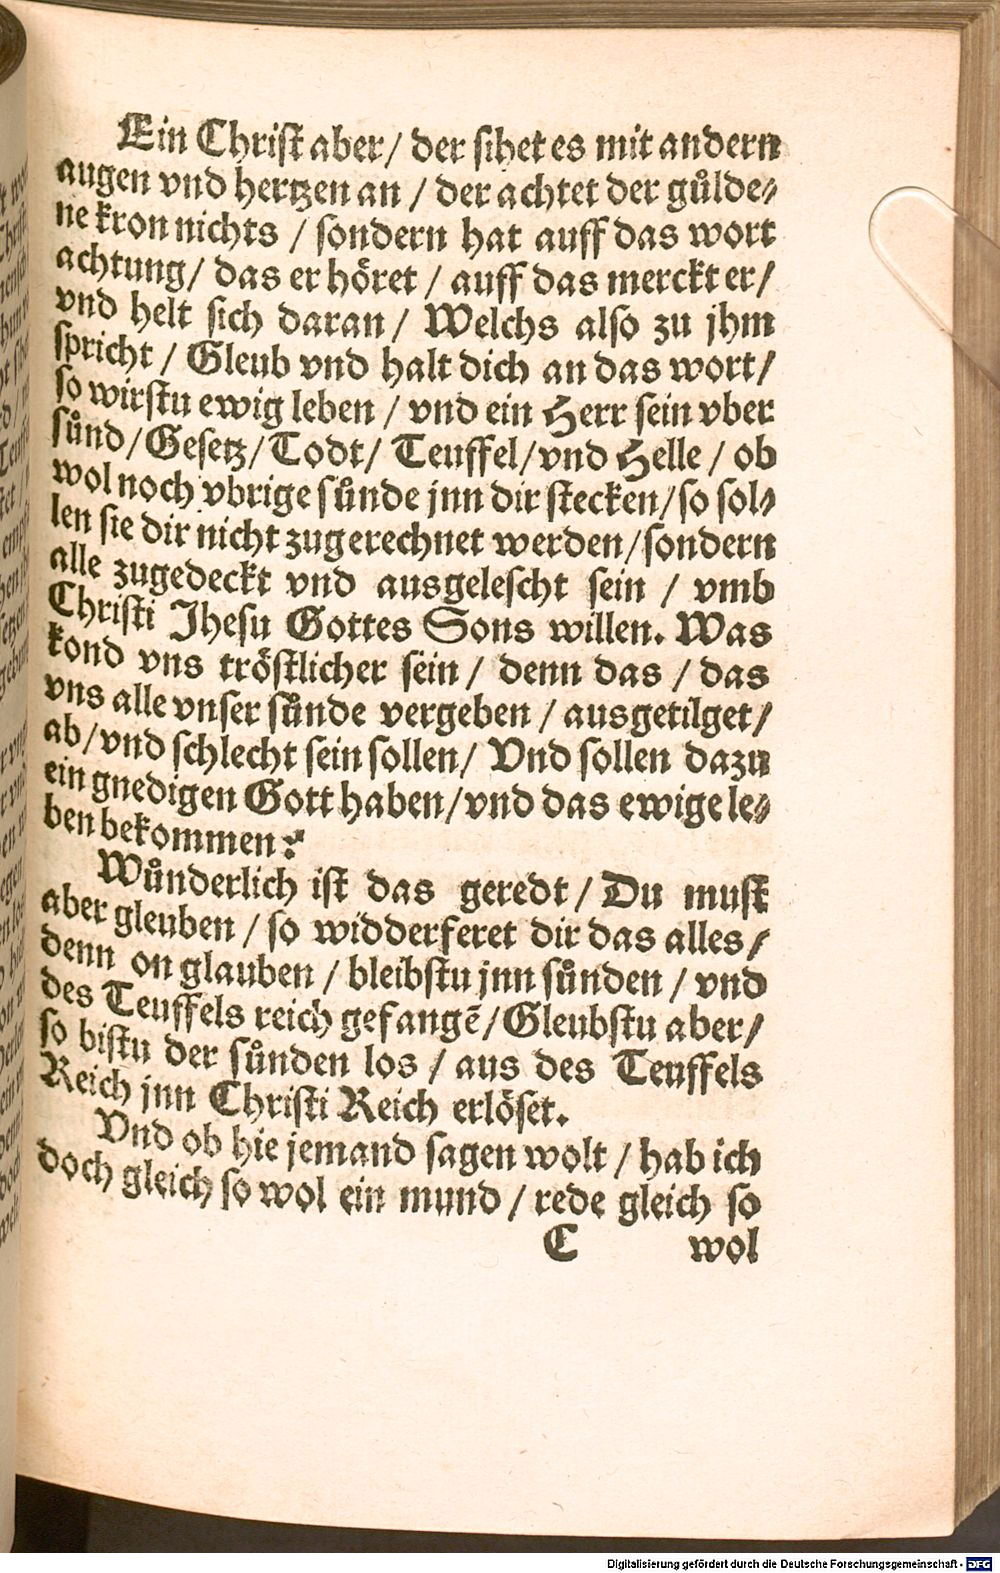 Ein Christ aber/ der sihet es mit andern
augen vnd hertzen an / der achtet der gůlde⸗
ne kron nichts / sondern hat auff das wort
achtung/ das er höret / auff das merckt er/
vnd helt sich daran / Welchs also zu jhm
spricht / Gleub vnd halt dich an das wort/
so wirstu ewig leben / vnd ein Herr sein vber
sůnd/Gesetz/Todt/ Teuffel/vnd Helle / ob
wol noch vbrige sůnde jnn dir stecken/so sol⸗
len sie dir nicht zugerechnet werden/sondern
alle zugedeckt vnd ausgelescht sein / vmb
Christi Jhesu Gottes Sons willen. Was
kond vns tröstlicher sein / denn das / das
vns alle vnser sůnde vergeben / ausgetilget/
ab/vnd schlecht sein sollen/ Vnd sollen dazu
ein gnedigen Gott haben/vnd das ewige le⸗
ben bekommen?
Wůnderlich ist das geredt / Du must
aber gleuben / so widderferet dir das alles/
denn on glauben / bleibstu jnn sůnden / vnd
des Teuffels reich gefangē/Gleubstu aber/
so bistu der sůnden los / aus des Teuffels
Reich jnn Christi Reich erlöset.
Vnd ob hie jemand sagen wolt / hab ich
doch gleich so wol ein mund / rede gleich so
C wol
Digitalisierung gefördert durch die Deutsche Forschungsgemeinschaft - DFG